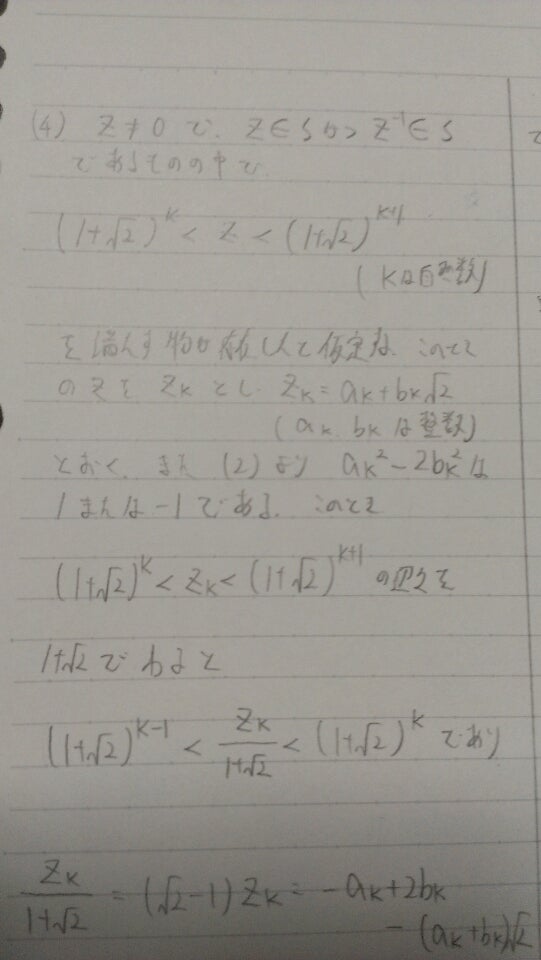 (4) z≠0で、z∈Sかつz⁻¹∈S
であるものの中で
(1+√2)^k < z < (1+√2)^{k+1}
(kは自然数)
を満たす物が存在したと仮定する。このとき
のzをz_kとし、z_k=a_k+b_k√2
(a_k、b_kは整数)
とおく、また(2)より a_k²-2b_k²は
1または-1である。このとき
(1+√2)^k < z_k < (1+√2)^{k+1} の辺々を
1+√2でわると
(1+√2)^{k-1} < z_k/(1+√2) < (1+√2)^k であり
z_k/(1+√2) = (√2-1)z_k = -a_k+2b_k
-(a_k+b_k)√2